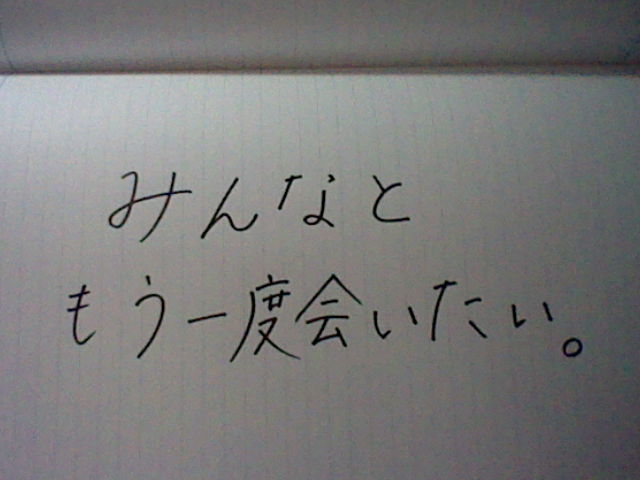 みんなと
もう一度会いたい。